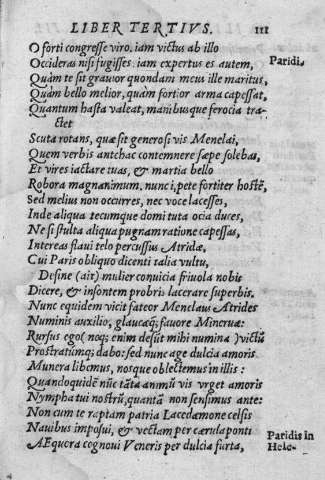 LIBER TERTIVS. 111
O forti congresse viro, iam victus ab illo
Occideras nisi fugisses: iam expertus es autem, Paridi.
Quàm te sit grauior quondam meus ille maritus,
Quàm bello melior, quàm fortior arma capessat,
Quantum hasta valeat, manibusque ferocia tra-
ctet
Scuta rotans, quæ sit generosi vis Menelai,
Quem verbis antehac contemnere sæpe solebas,
Et vires iactare tuas, & martia bello
Robora magnanimum. nunc i, pete fortiter hostẽ,
Sed melius non occurres, nec voce lacesses,
Inde aliqua tecumque domi tuta ocia duces,
Ne si stulta aliqua pugnam ratione capessas,
Intereas flaui telo percussus Atridæ.
Cui Paris obliquo dicenti talia vultu,
Desine (ait) mulier conuicia friuola nobis
Dicere, & insontem probris lacerare superbis.
Nunc equidem vicit fateor Menelaus Atrides
Numinis auxilio, glaucæq; fauore Mineruæ:
Rursus ego( neq; enim desũt mihi numina )victũ
Prostratũmq; dabo: sed nunc age dulcia amoris
Munera libemus, nosque oblectemus in illis:
Quandoquidẽ nũc tãta animũ vis vrget amoris
Nympha tui nostrũ, quantã non sensimus ante:
Non cum te raptam patria Lacedæmone celsis
Nauibus imposui, & vectam per cærula ponti
AEquora cognoui Veneris per dulcia furta, Paridis in
Hele-